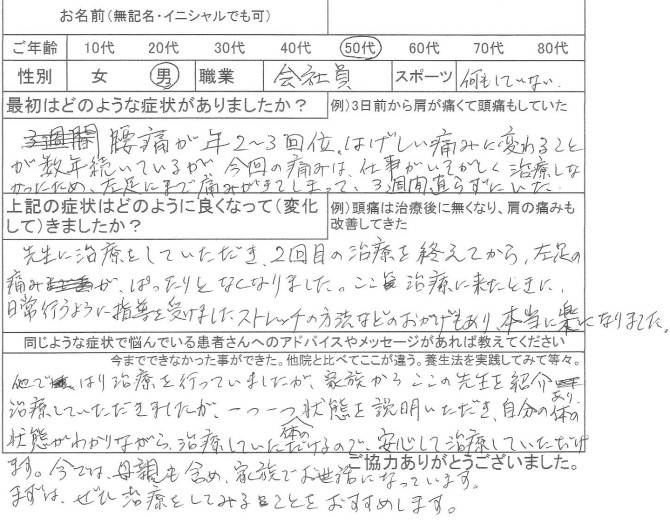 お名前(無記名・イニシャルでも可)
ご年齢 10代 20代 30代 40代 50代 60代 70代 80代
性別 女 男 職業 会社員 スポーツ 何もしていない.
最初はどのような症状がありましたか? 例)3日前から肩が痛くて頭痛もしていた
腰痛が年2~3回位、はげしい痛みに変わること
が数年続いているが、今回の痛みは、仕事がいそがしく治療しな
かったため、左足にまで痛みがきてしまって、3週間直らずにいた.
上記の症状はどのように良くなって(変化して)きましたか? 例)頭痛は治療後に無くなり、肩の痛みも改善してきた
先生に治療をしていただき、2回目の治療を終えてから、左足の
痛みが、ぱったりとなくなりました。ここ治療に来たときに、
日常行うように指導を受けましたストレッチの方法などのおかげもあり、本当に楽になりました。
同じような症状で悩んでいる患者さんへのアドバイスやメッセージがあれば教えてください
今までできなかった事ができた。他院と比べてここが違う。養生法を実践してみて等々。
他ではり治療を行っていましたが、家族からここの先生を紹介あり、
治療していただきましたが、一つ一つ体の状態を説明いただき、自分の体の
状態がわかりながら、治療していただけるので、安心して治療していただけ
ます。今では、母親も含め、家族でお世話になっています。
ご協力ありがとうございました。
まずは、ぜひ治療をしてみることをおすすめします。